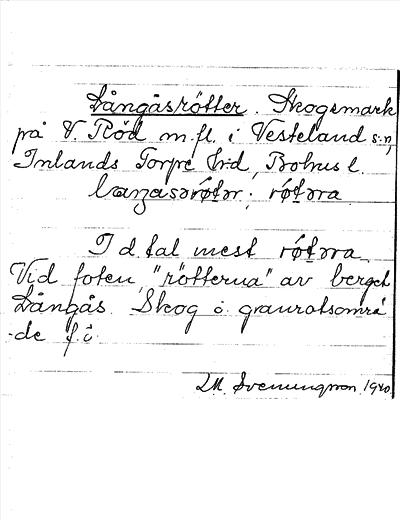 Långåsrötter. Skogsmark
på V. Röd m.fl. i Vesteland s:n,
Inlands Torpe h:d, Bohus l.
røtəra
I d. tal mest røtəra.
Vid foten "rötterna" av berget
Långås. Skog o. granrotsområ
de f.ö.
LM. Svenungsson 1940.